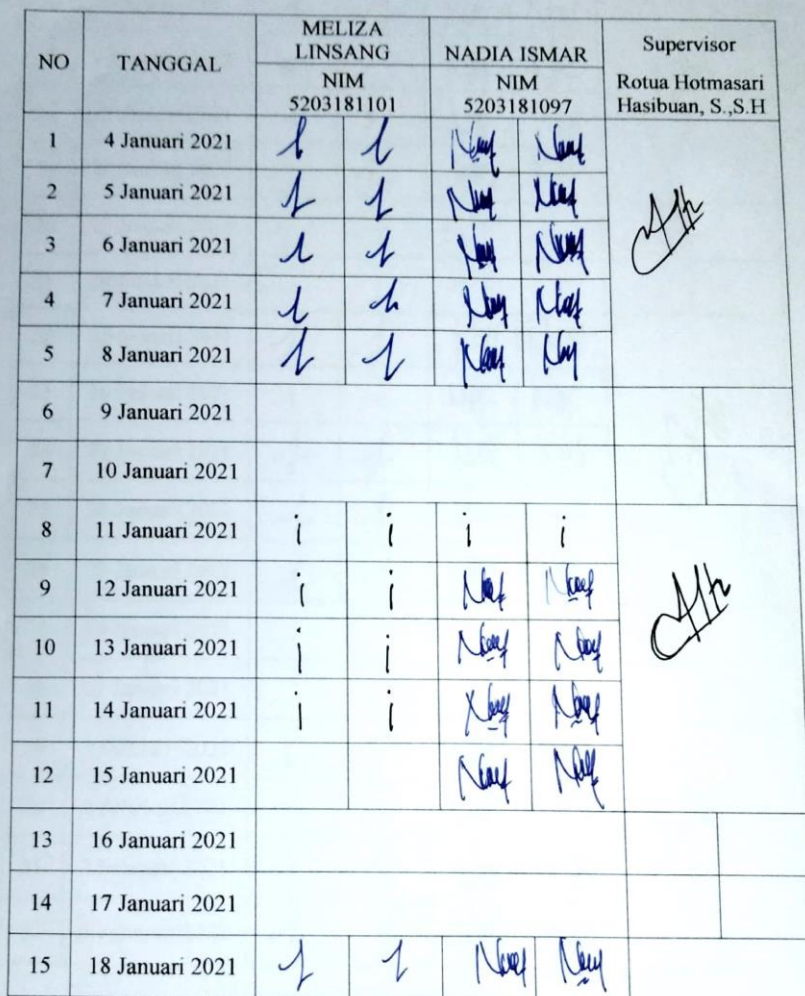 NO TANGGAL MELIZA LINSANG NADIA ISMAR Supervisor
NIM 5203181101 NIM 5203181097 Rotua Hotmasari Hasibuan, S.,S.H
1 4 Januari 2021
2 5 Januari 2021
3 6 Januari 2021
4 7 Januari 2021
5 8 Januari 2021
6 9 Januari 2021
7 10 Januari 2021
8 11 Januari 2021 i i i i
9 12 Januari 2021 i i
10 13 Januari 2021 i i
11 14 Januari 2021 i i
12 15 Januari 2021
13 16 Januari 2021
14 17 Januari 2021
15 18 Januari 2021